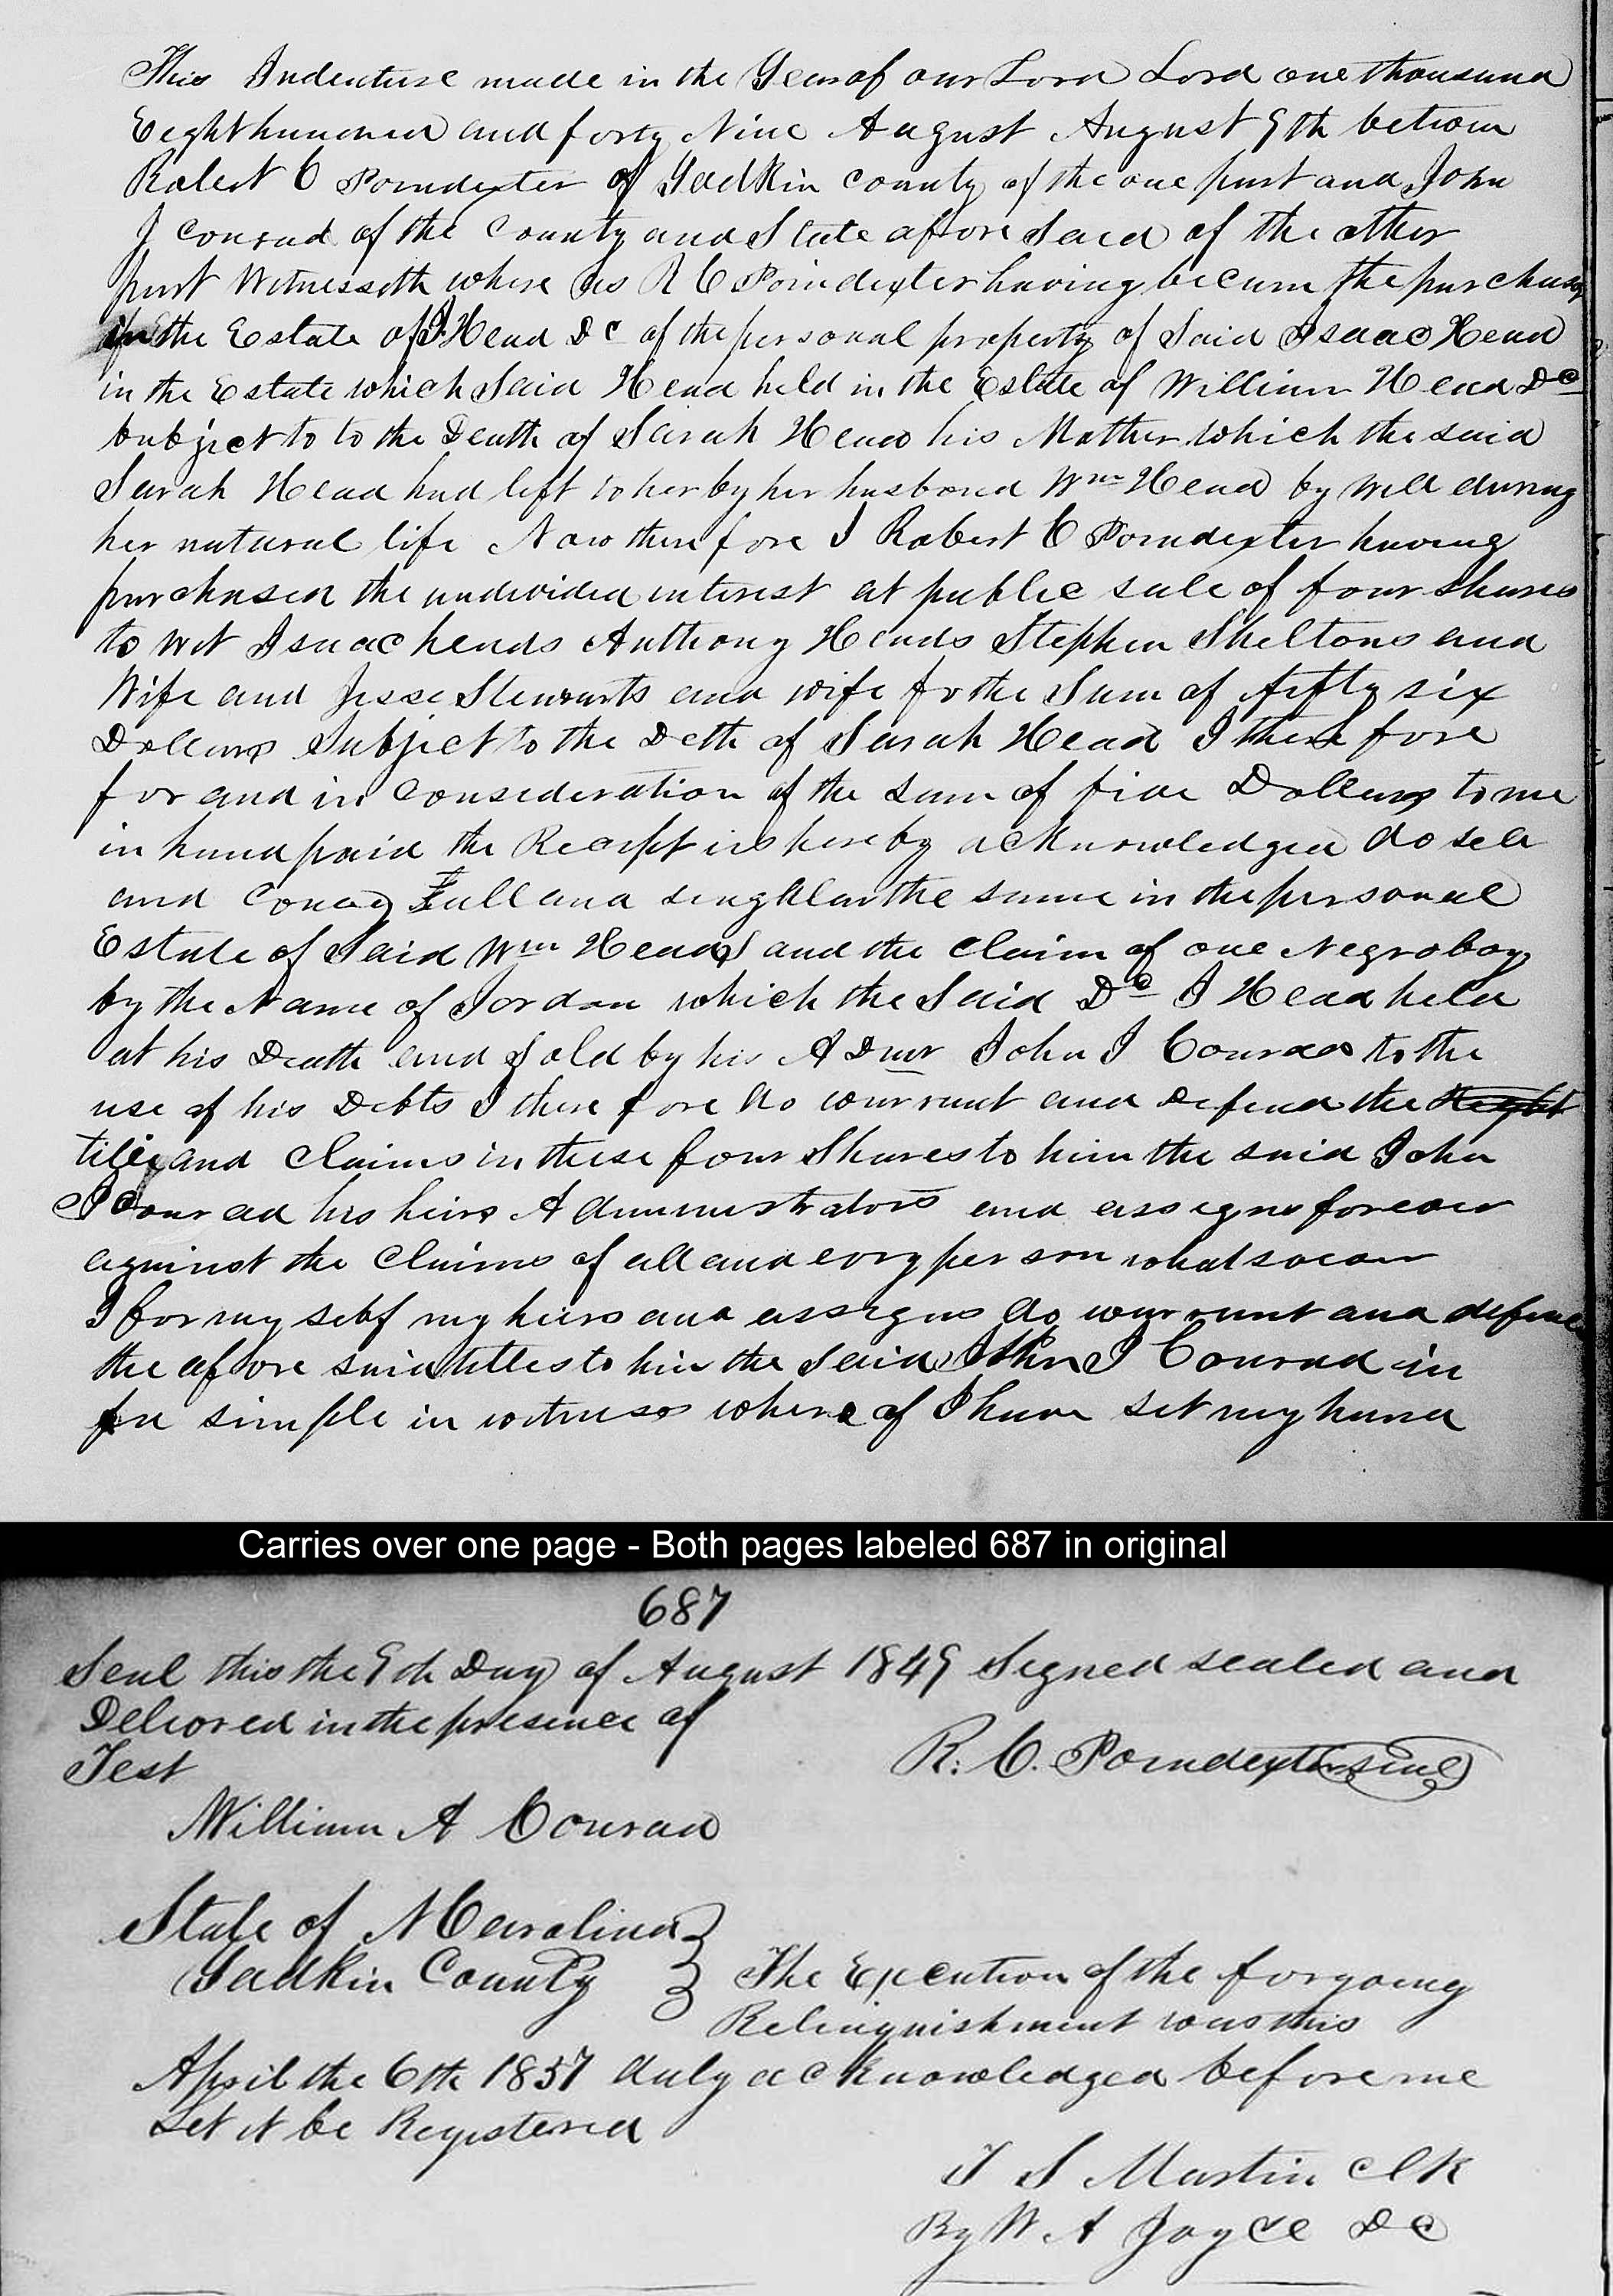 This Indenture made in the Year of our Lord Lord one thousand
Eight hundred and forty Nine August August 9th betwen
Robert C Poindexter of Yadkin county of the one part and John
J Conrad of the County and State afore Said of the other
part Witnesseth where as R C Poindexter having becum the purchaser
in the Estate of I Head Dc of the personal property of Said Isaac Head
in the Estate which Said Head held in the Estate of William Head Dc
Subject to to the Death of Sarah Head his Mother which the said
Sarah Head had left to her by her husband Wm Head by Will during
her natural life Now therefore I Robert C Poindexter having
purchased the undivided interest at public sale of four Shares
to wit Isaac heads Anthony Heads Stephen Sheltons and
Wife and Jesse Stewarts and wife for the Sum of fifty six
Dollars Subject to the Deth of Sarah Head I there fore
for and in consideration of the sum of five Dollars to me
in hand paid the Receipt is hereby acknowledged do sell
and convey all and singular the same in the personal
Estate of Said Wm Head and the claim of one Negro boy
by the Name of Jordan which the Said Dc I Head held
at his Death and Sold by his Admr John J Conrad to the
use of his Debts I there fore do warrant and Defend the
title and Claims in these four Shares to him the said John
J Conrad his heirs Administrators and assigns forever
against the Claims of all and evry person whatsoever
I for my self my heirs and assigns do warrant and defend
the afore said titles to him the Said John J Conrad in
fee simple in witness where of I have set my hand
Carries over one page - Both pages labeled 687 in original
687
Seal this the 9th Day of August 1849 Signed sealed and
Delivered in the presence of
Test R. C. Poindexter Seal
William A Conrad
State of N Carolina
Yadkin County The Execution of the forgoing
Relinquishment was this
April the 6th 1857 duly acknowledged before me
Let it be Registered
T S Martin Clk
By W A Joyce DC